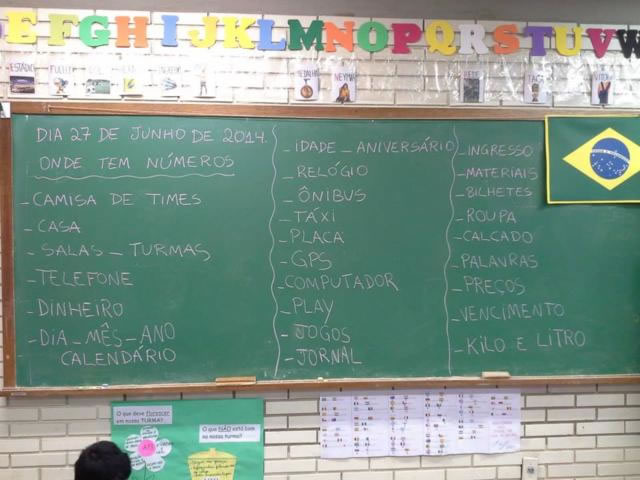 E F G H I J K L M N O P Q R S T U V W
ESTÁDIO
GOL
MEDALHA
NEYMAR
REDE
TAÇA
DIA 27 DE JUNHO DE 2014.
ONDE TEM NÚMEROS
- CAMISA DE TIMES
- CASA
- SALAS - TURMAS
- TELEFONE
- DINHEIRO
- DIA - MÊS - ANO
CALENDÁRIO
- IDADE - ANIVERSÁRIO
- RELÓGIO
- ÔNIBUS
- TÁXI
- PLACA
- GPS
- COMPUTADOR
- PLAY
- JOGOS
- JORNAL
- INGRESSO
- MATERIAIS
- BILHETES
- ROUPA
- CALCADO
- PALAVRAS
- PREÇOS
- VENCIMENTO
- KILO E LITRO
O que deve florescer
em nossa TURMA?
O que NÃO está bom
na nossa turma?